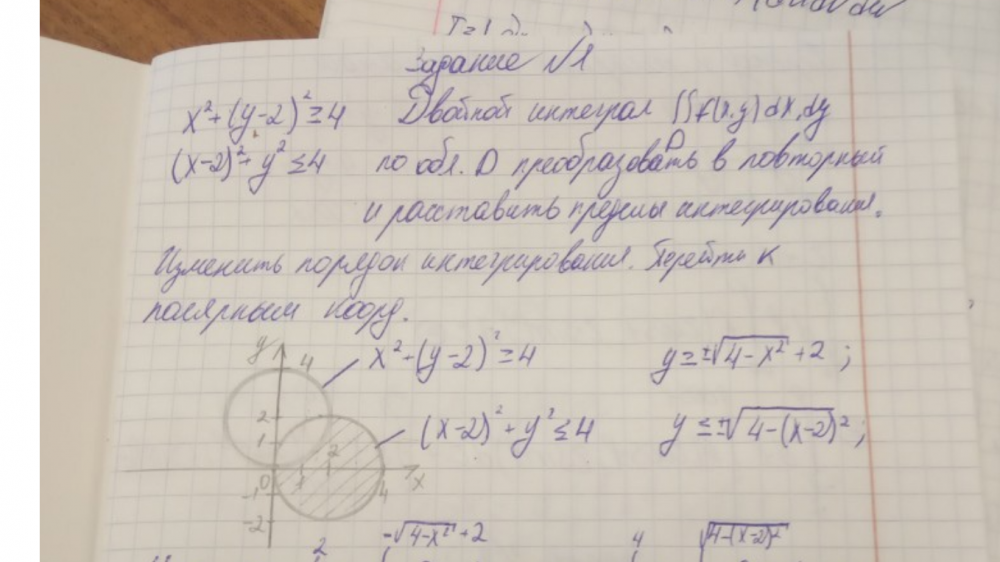 Задание №1
x²+(y-2)²≥4 Двойной интеграл ∬f(x,y)dx,dy
D
(x-2)²+y²≤4 по обл. D преобразовать в повторный
и расставить пределы интегрирования.
Изменить порядок интегрирования. Перейти к
полярным коорд.
y 4 x²+(y-2)²≥4 y≥±√4-x²+2 ;
2 (x-2)²+y²≤4 y≤±√4-(x-2)² ;
1 2
0 4 x
-1
-2
2 -√4-x²+2 4 √4-(x-2)²